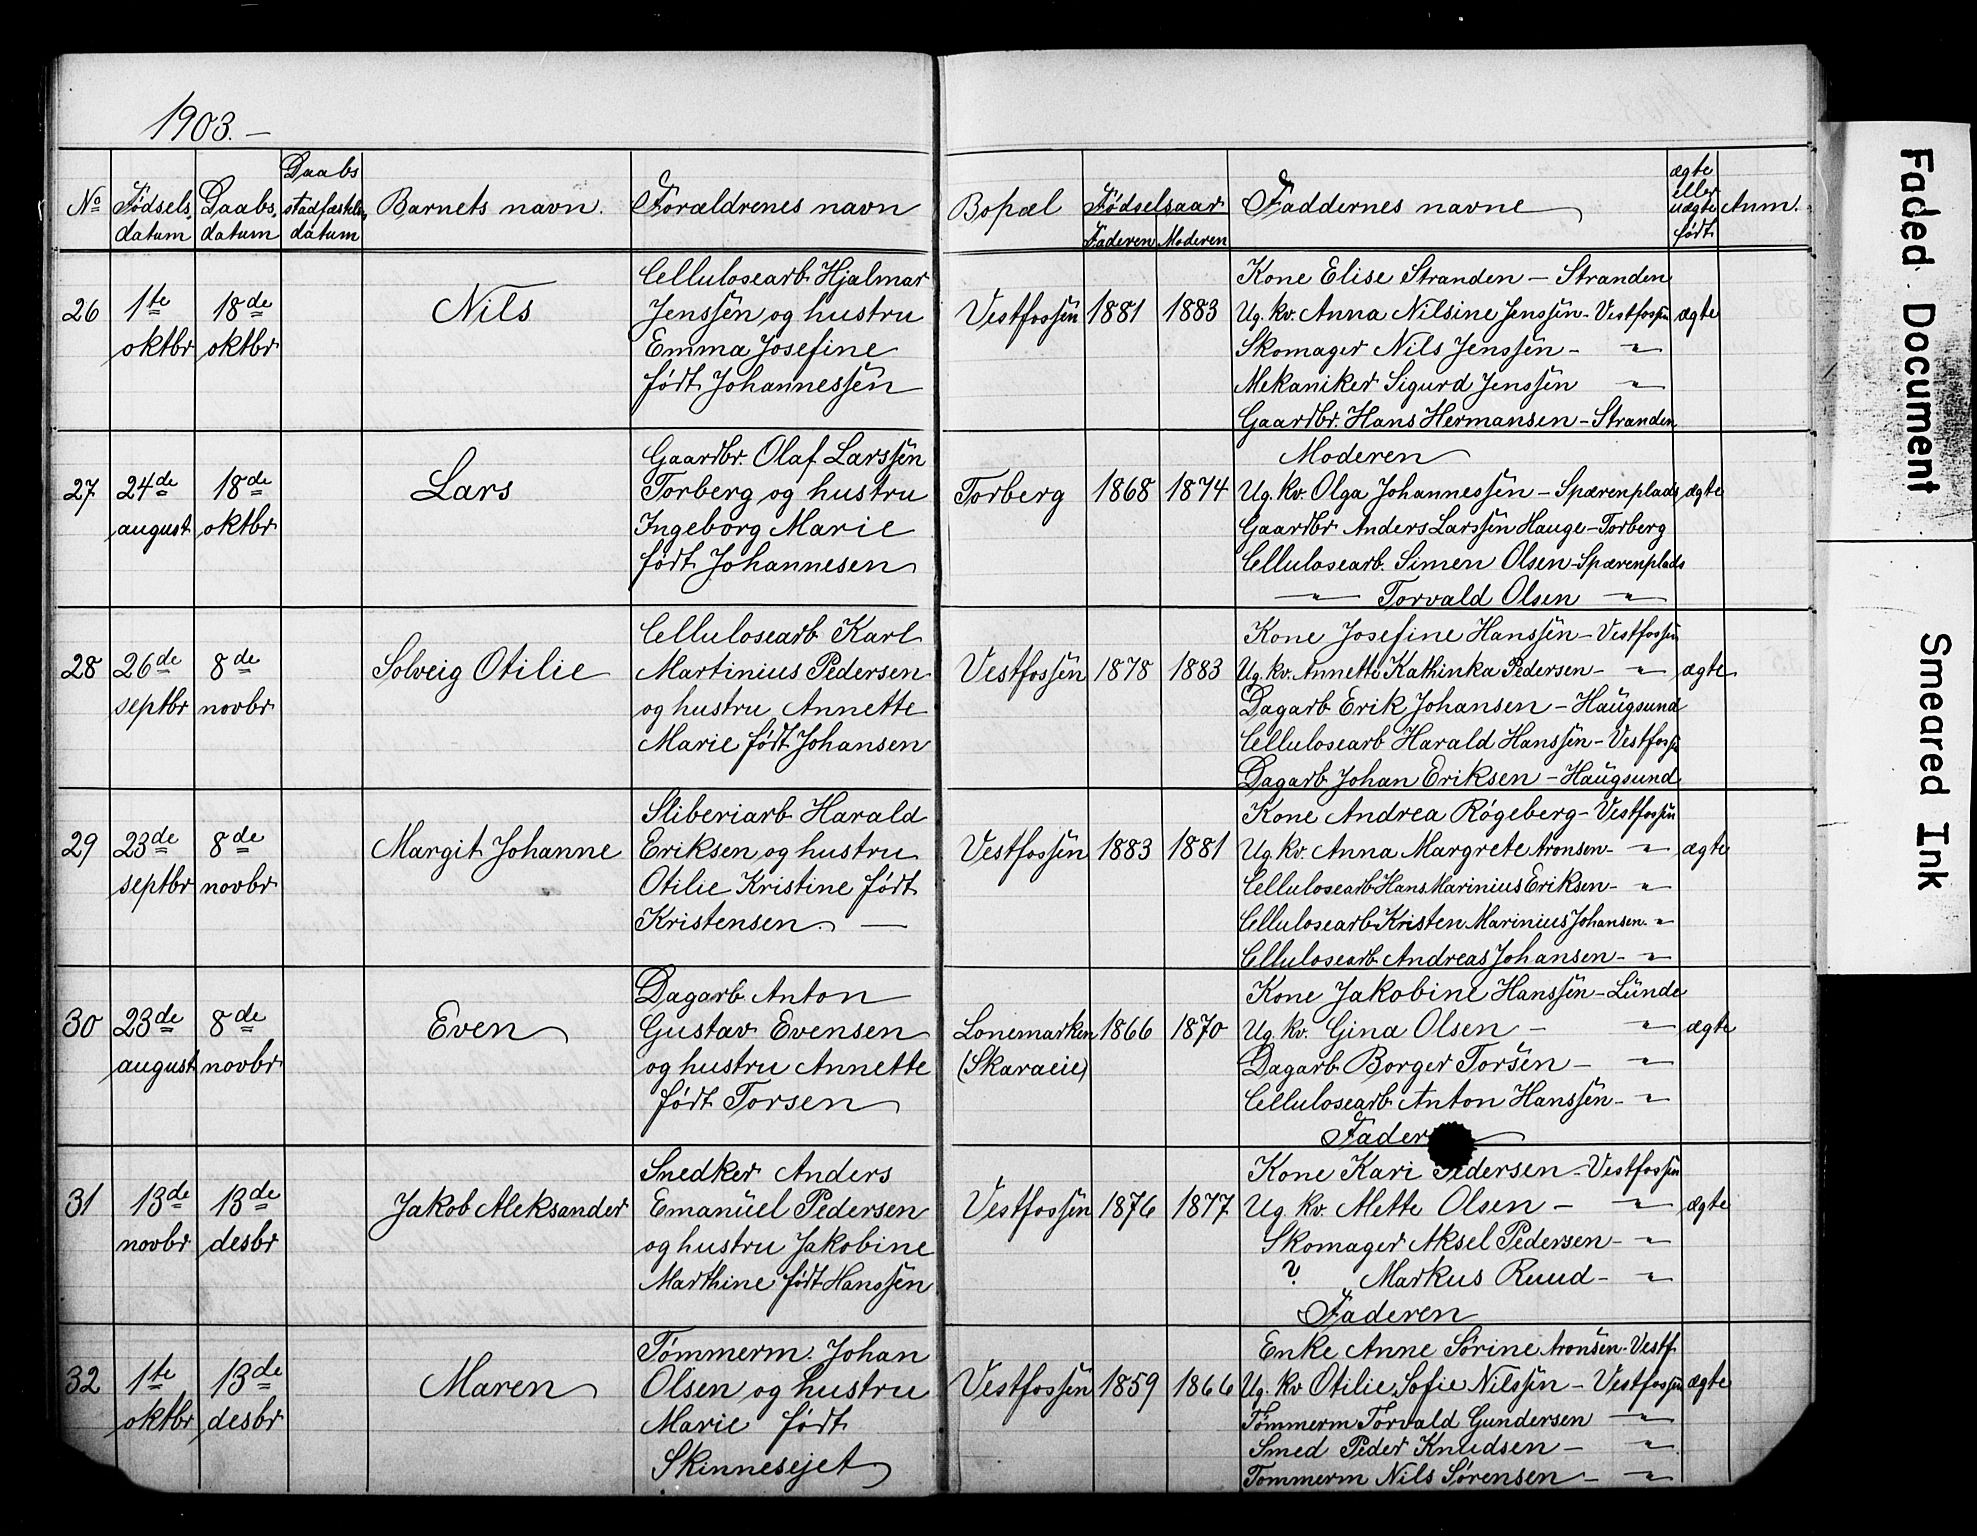 1903. —
No
Fødsels datum
Daabs datum
Daabs stadfæstelses datum
Barnets navn.
Forældrenes navn
Bopæl
Fødselsaar
Faderen
Moderen
Faddernes navne
ægte eller uægte født
Anm.
26
1te oktbr
18de oktbr
Nils
Cellulosearb. Hjalmar
Jenssen og hustru
Emma Josefine
født Johannessen
Vestfossen
1881
1883
Kone Elise Stranden — Stranden
Ug. kv. Anna Nilsine Jenssen - Vestfossen
Skomager Nils Jenssen - "
Mekaniker Sigurd Jenssen "
Gaardbr. Hans Hermansen - Stranden
ægte
27
24de august
18de oktbr
Lars
Gaardbr. Olaf Larssen
Torberg og hustru
Ingeborg Marie
født Johannesen
Torberg
1868
1874
Moderen
Ug. kv. Olga Johannessen - Spærenplads
Gaardbr Anders Larssen Hauge - Torberg
Cellulosearb. Simen Olsen - Spærenplads
— " — Torvald Olsen — " —
ægte
28
26de septbr
8de novbr
Solveig Otilie
Cellulosearb Karl
Martinius Pedersen
og hustru Annette
Marie født Johansen
Vestfossen
1878
1883
Kone Josefine Hanssen - Vestfossen
Ug. kv. Annette Kathinka Pedersen - "
Dagarb Erik Johansen - Haugsund
Cellulosearb Harald Hanssen - Vestfoss
Dagarb Johan Eriksen - Haugsund
ægte
29
23de septbr
8de novbr
Margit Johanne
Sliberiarb Harald
Eriksen og hustru
Otilie Kristine født
Kristensen. —
Vestfossen
1883
1881
Kone Andrea Røgeberg - Vestfossen
Ug. kv. Anna Margrete Aronsen - "
Cellulosearb Hans Marinius Eriksen - "
Cellulosearb Kristen Marinius Johansen. "
Cellulosearb Andreas Johansen - "
ægte
30
23de august
8de novbr
Even
Dagarb Anton
Gustav Evensen
og hustru Annette
født Torsen
Lonemarken (Skaraeie)
1866
1870
Kone Jakobine Hanssen - Lunde
Ug. kv. Gina Olsen - "
Dagarb Borger Torsen - "
Cellulosearb Anton Hanssen - "
Fader
ægte
31
13de novbr
13de desbr
Jakob Aleksander
Snedker Anders
Emanuel Pedersen
og hustru Jakobine
Marthine født Hanssen
Vestfossen
1876
1877
Kone Kari Pedersen - Vestfossen
Ug. kv. Mette Olsen - "
Skomager Aksel Pedersen - "
? Markus Ruud - "
Faderen
ægte
32
1te oktbr
13de desbr
Maren
Tømmerm. Johan
Olsen og hustru
Marie født
Skinnesejet
Vestfossen
1859
1866
Enke Anne Sørine Aronsen - Vestf.
Ug. kv Otilie Sofie Nilssen - Vestfossen
Tømmerm Torvald Gundersen "
Smed Peder Knudsen - "
Tømmerm Nils Sørensen - "
ægte
Faded Document
Smeared Ink